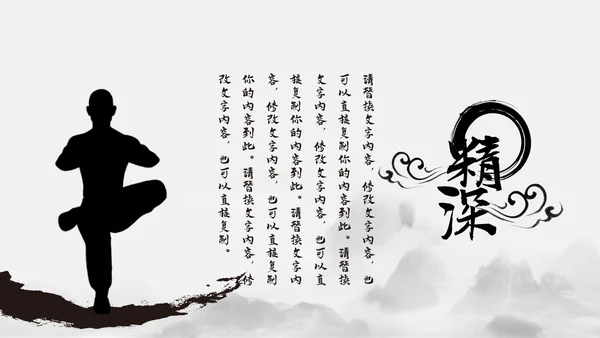 精深
请替换文字内容，修改文字内容，也
可以直接复制你的内容到此。请替换
文字内容，修改文字内容，也可以直
接复制你的内容到此。请替换文字内
容，修改文字内容，也可以直接复制
你的内容到此。请替换文字内容，修
改文字内容，也可以直接复制。